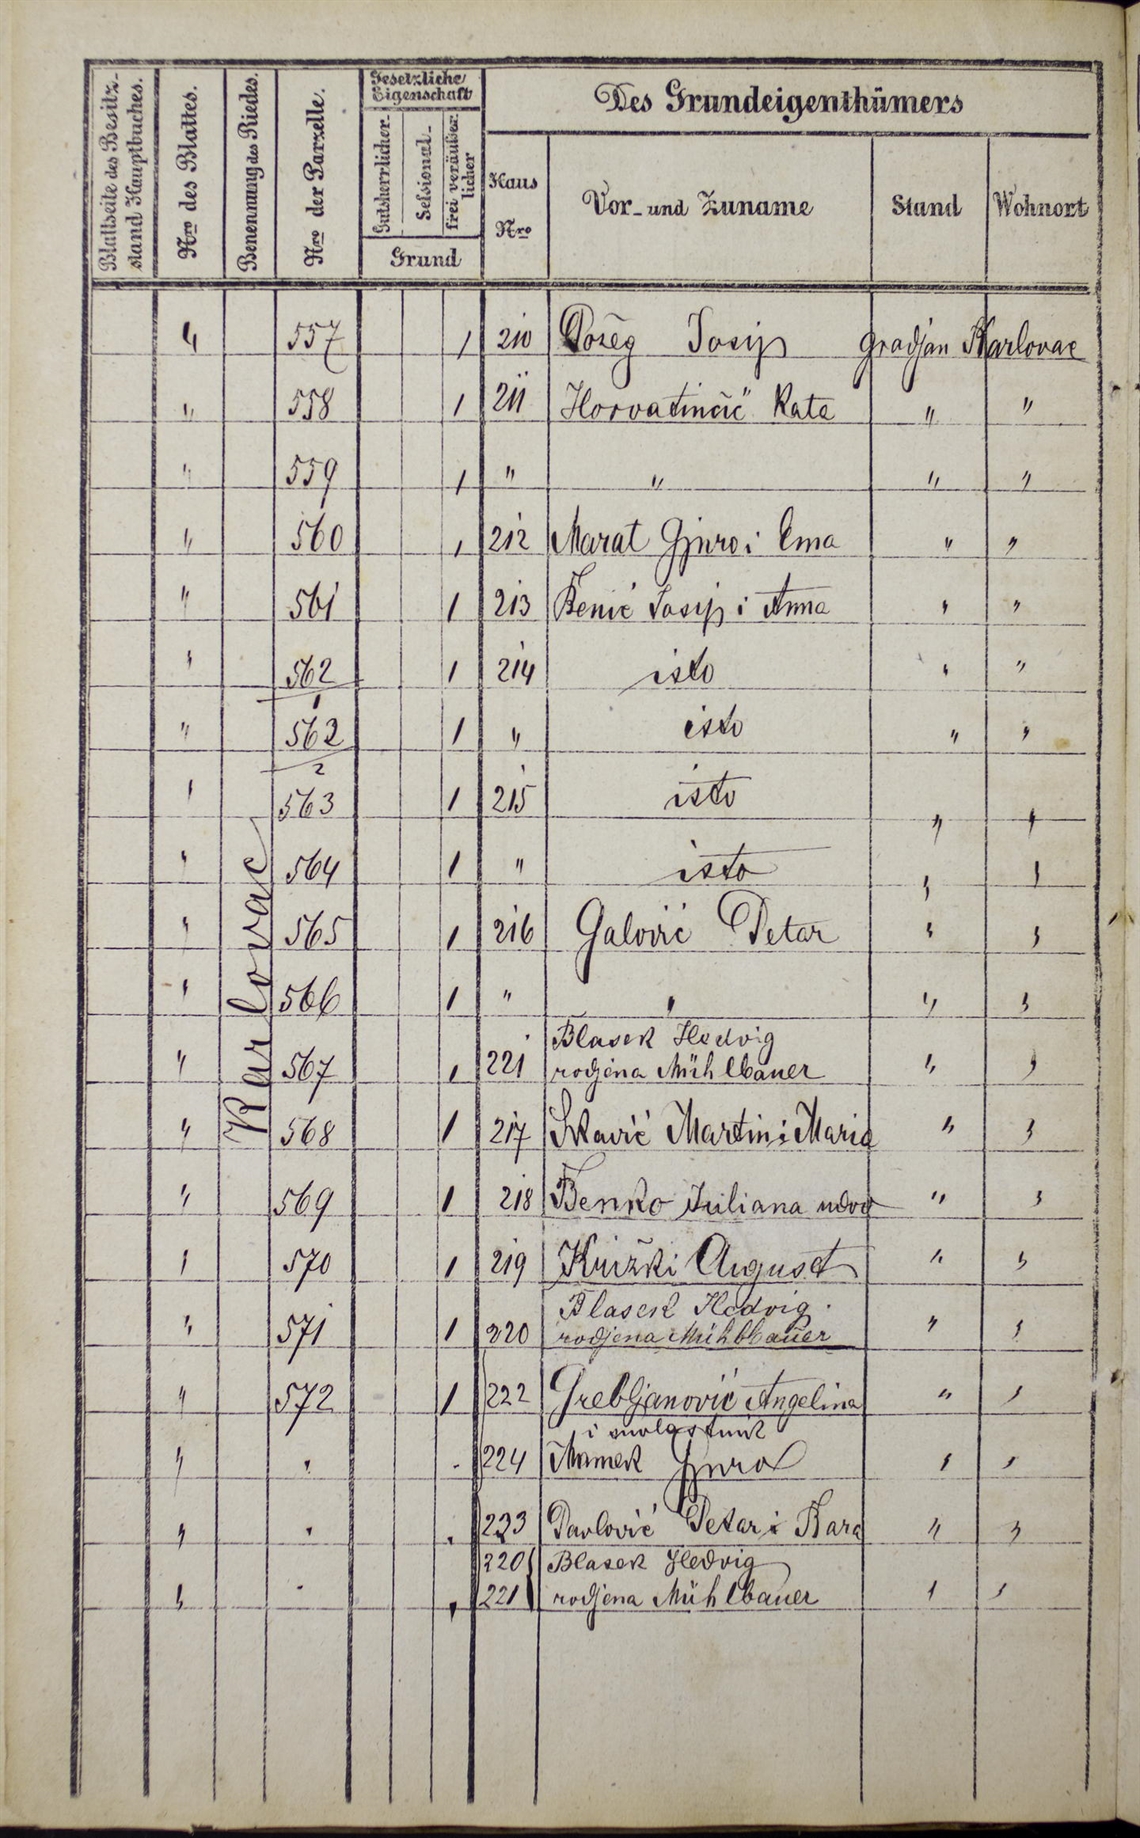 Blattseite des Besitz-
stand Hauptbuches.
Nro des Blattes.
Benennung des Riedes.
Nro der Parzelle.
Gesetzliche
Eigenschaft
Gutsherrlicher
Sessional-
frei veräußer-
licher
Grund
Des Grundeigenthümers
Haus
Nro
Vor- und Zuname
Stand
Wohnort
Karlovac
" 557 1 210 Požeg Josip gradjan Karlovac
" 558 1 211 Horvatinčić Kata " "
" 559 1 " " " "
" 560 1 212 Marat Gjuro i Ema " "
" 561 1 213 Benić Josip i Anna " "
" 562/1 1 214 isto " "
" 562/2 1 " isto " "
" 563 1 215 isto " "
" 564 1 " isto " "
" 565 1 216 Galović Petar " "
" 566 1 " " " "
Blasek Hedvig
" 567 1 221 rodjena Mühlbauer " "
" 568 1 217 Martin i Maria " "
" 569 1 218 Benko Juliana udova " "
" 570 1 219 Križki August " "
Blasek Hedvig
" 571 1 220 rodjena Mühlbauer " "
" 572 1 222 Grebljanović Angelina " "
i suvlastnik
" " " 224 Mamek Gjuro " "
" " " 223 Pavlović Petar i Bara " "
220 Blasek Hedvig
" " " 221 rodjena Mühlbauer " "